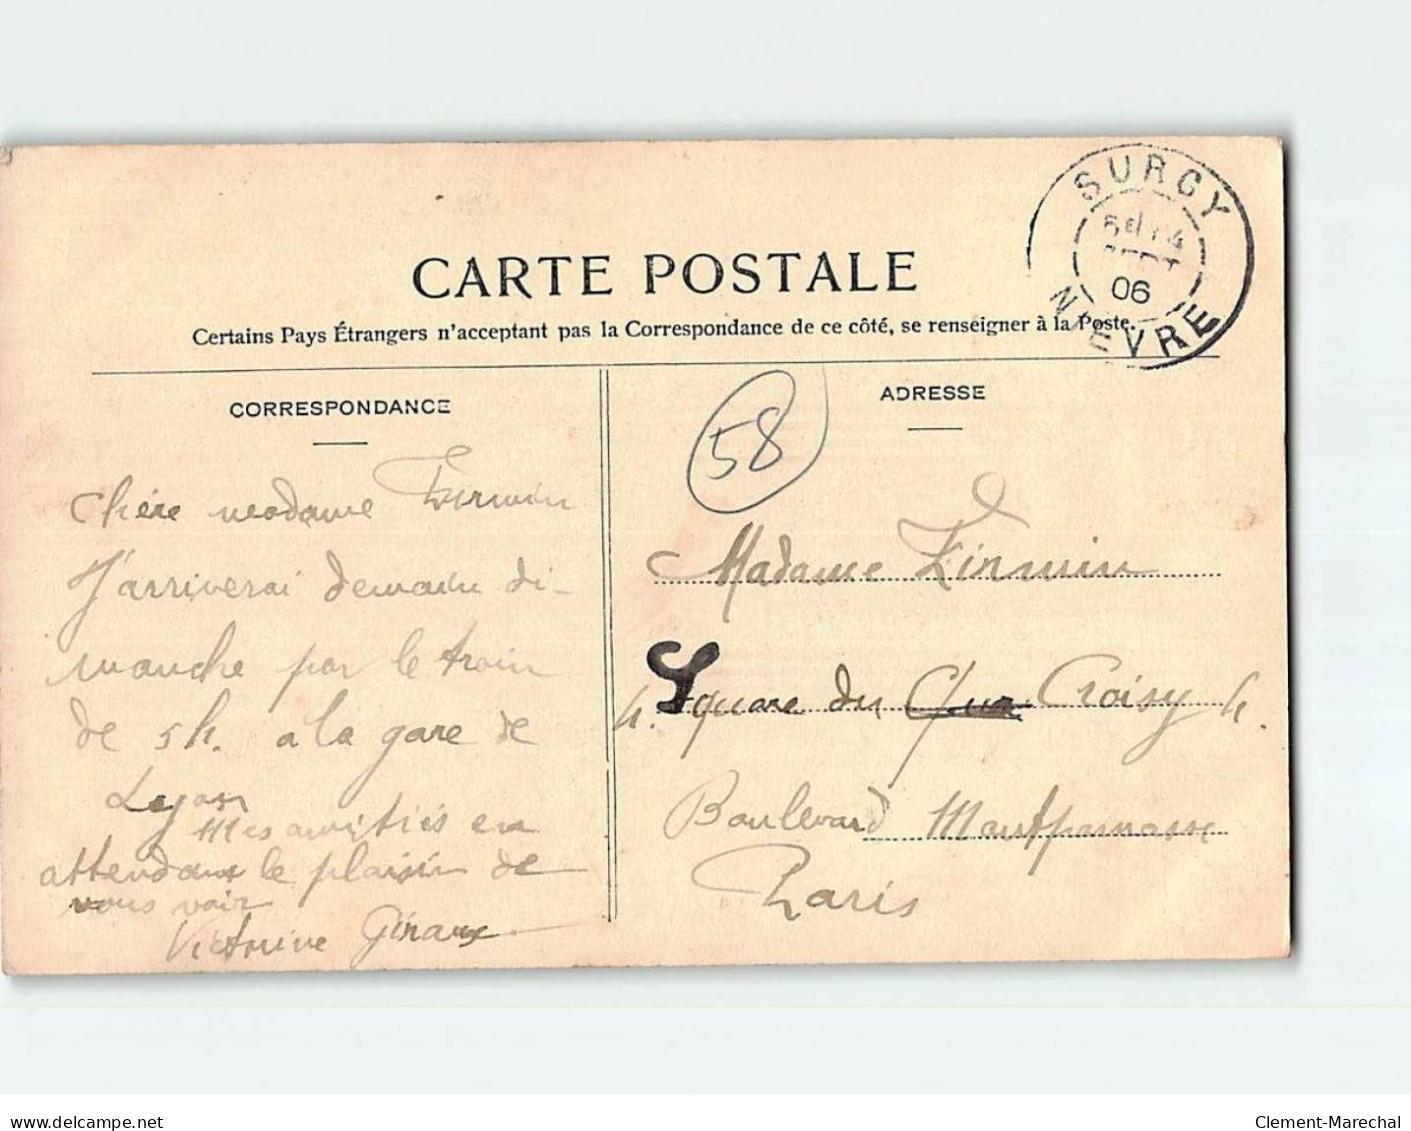 SURGY
06
NIEVRE
CARTE POSTALE
Certains Pays Étrangers n'acceptent pas la Correspondance de ce côté, se renseigner à la Poste.
CORRESPONDANCE
Chére madame Firmin
J'arriverai demain di-
manche par le train
de 5h. a la gare de
Lyon
Mes amitiés en
attendant le plaisir de
vous voir
Victorine
ADRESSE
58
Madame Firmin
4. Square du Croisy 4.
Boulevard Montparnasse
Paris
delcampe.net
Clement-Marechal